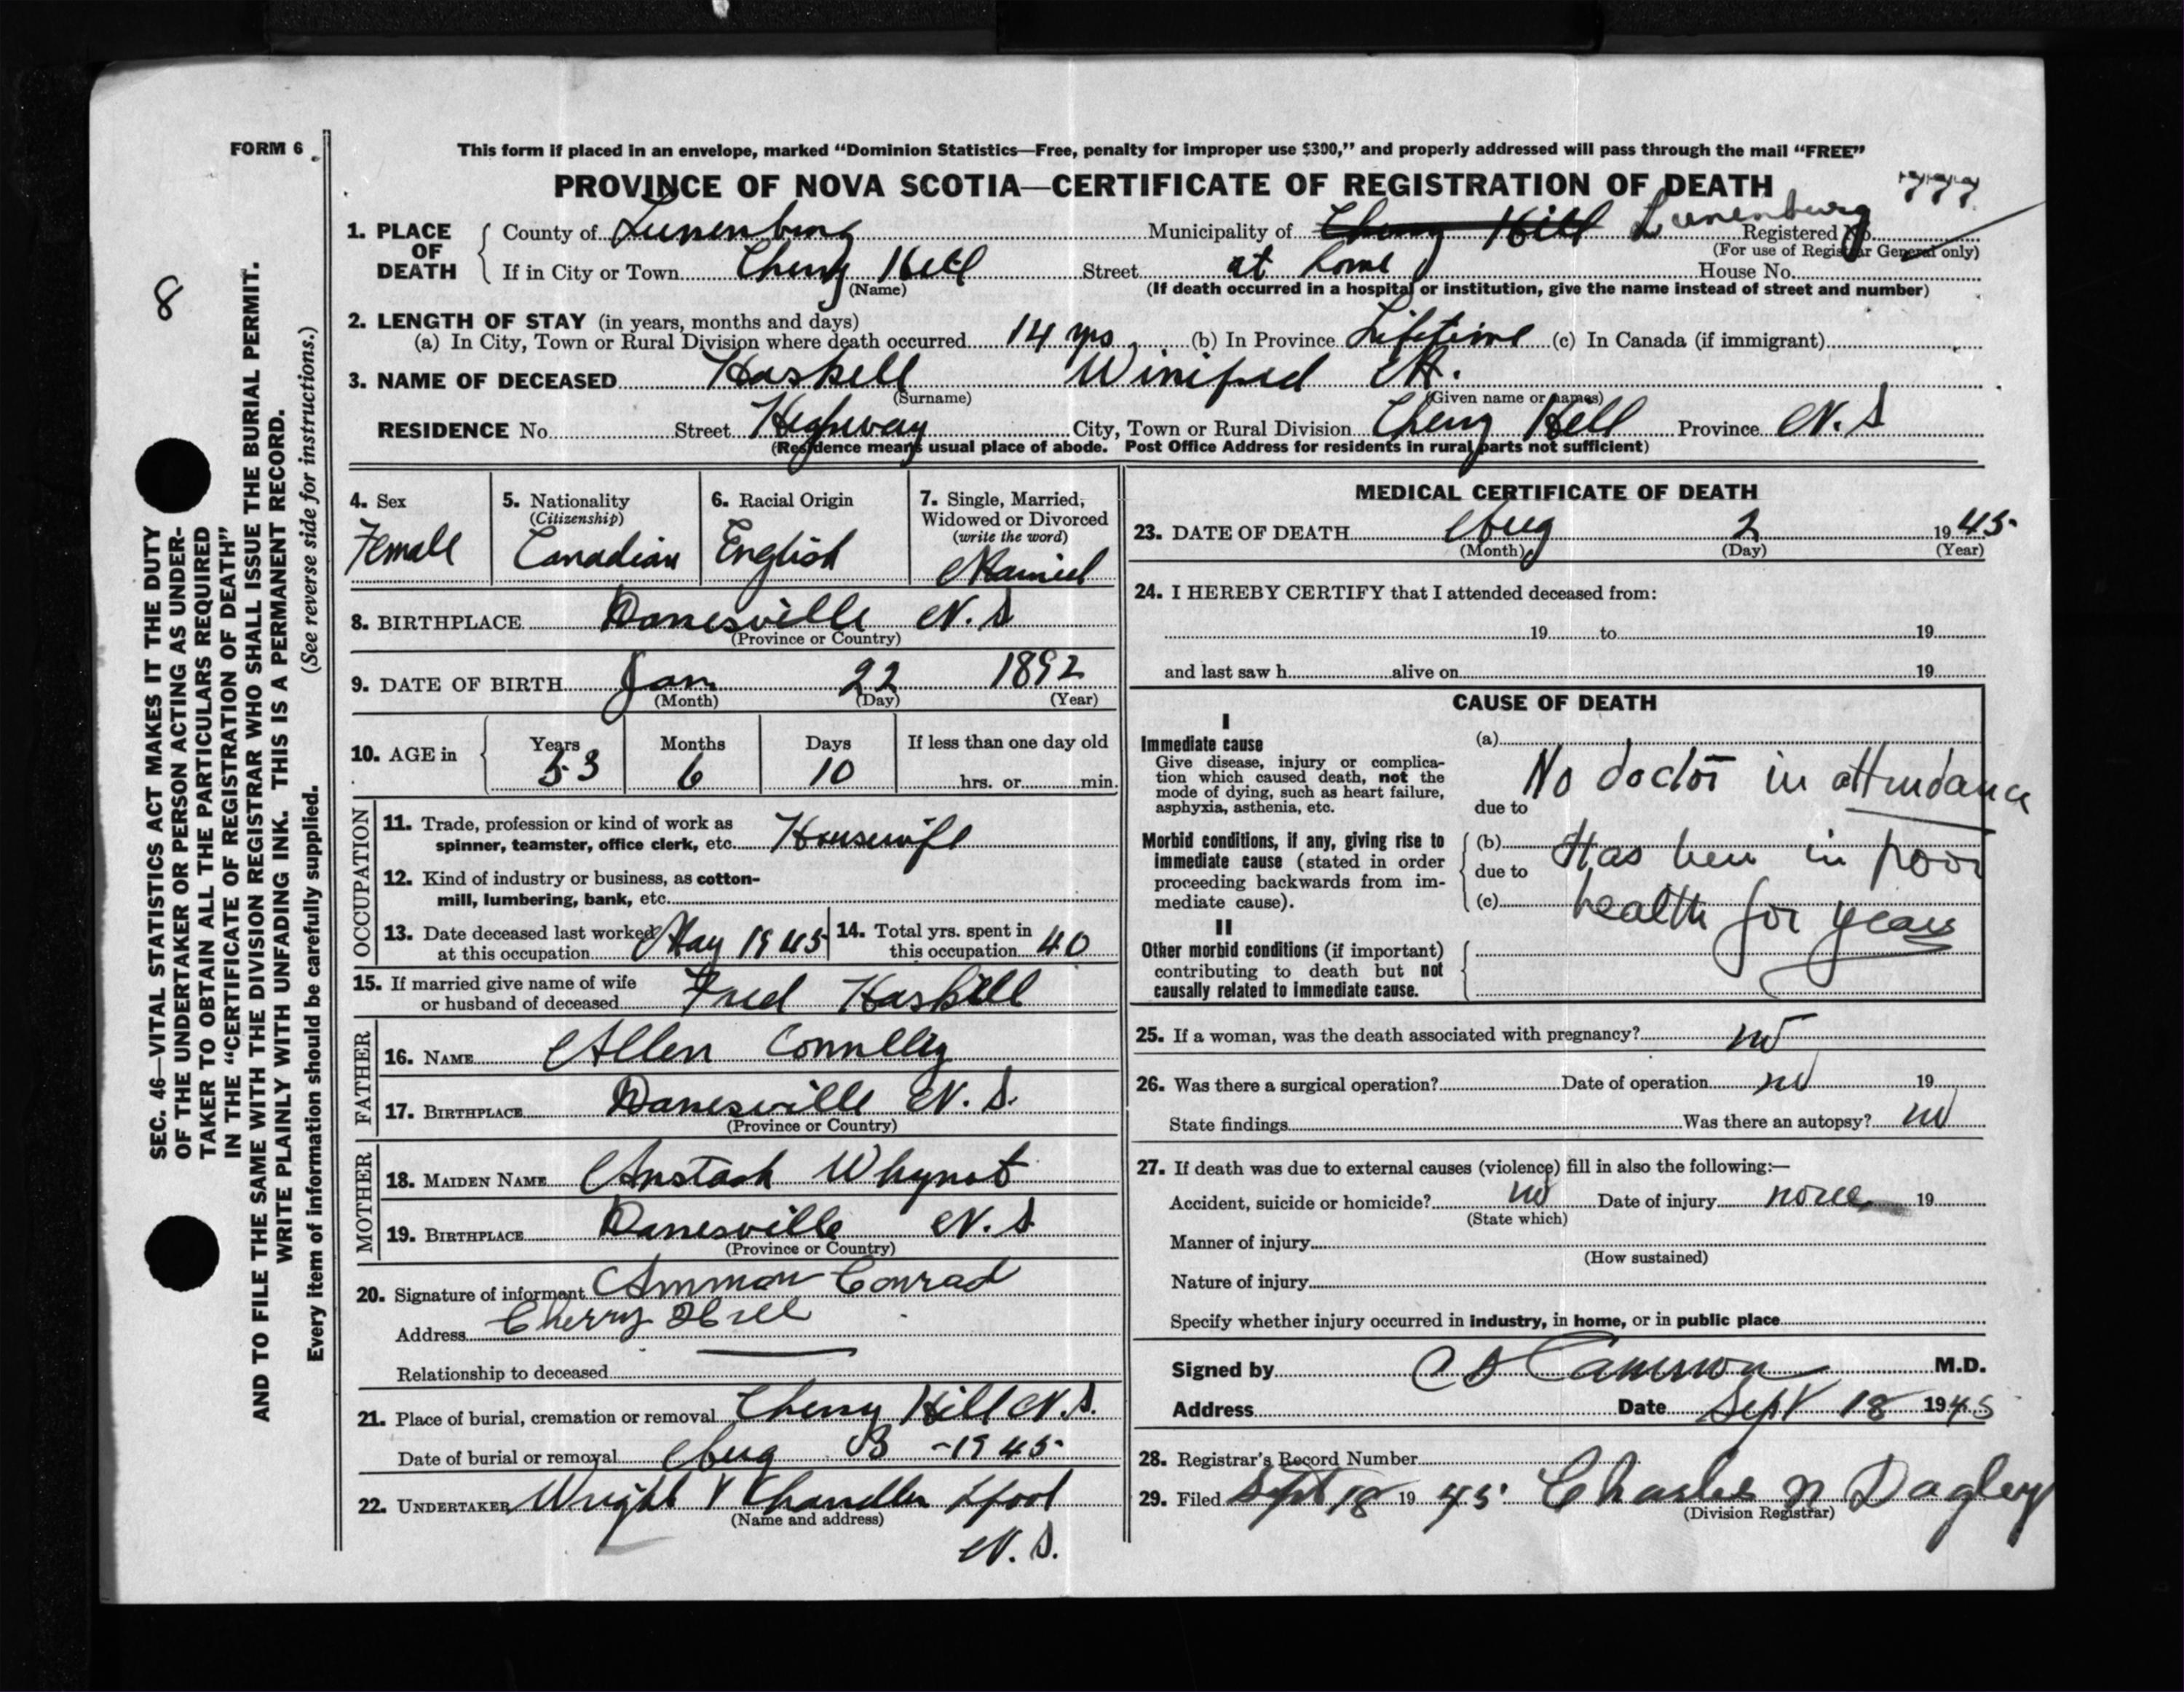 FORM 6
This form if placed in an envelope, marked "Dominion Statistics—Free, penalty for improper use $300," and properly addressed will pass through the mail "FREE"
PROVINCE OF NOVA SCOTIA—CERTIFICATE OF REGISTRATION OF DEATH 777
1. PLACE OF DEATH
County of Lunenburg Municipality of Cherry Hill Lunenburg Registered No.
(For use of Registrar General only)
If in City or Town Cherry Hill Street at home House No.
(Name) (If death occurred in a hospital or institution, give the name instead of street and number)
2. LENGTH OF STAY (in years, months and days)
(a) In City, Town or Rural Division where death occurred 14 yrs (b) In Province Lifetime (c) In Canada (if immigrant)
3. NAME OF DECEASED Haskell Winifred M.
(Surname) (Given name or names)
RESIDENCE No. Street Highway City, Town or Rural Division Cherry Hill Province N.S
(Residence means usual place of abode. Post Office Address for residents in rural parts not sufficient)
4. Sex
Female
5. Nationality
(Citizenship)
Canadian
6. Racial Origin
English
7. Single, Married,
Widowed or Divorced
(write the word)
Married
8. BIRTHPLACE Danesville N.S
(Province or Country)
9. DATE OF BIRTH Jan 22 1892
(Month) (Day) (Year)
10. AGE in
Years Months Days If less than one day old
53 6 10 hrs. or min.
OCCUPATION
11. Trade, profession or kind of work as
spinner, teamster, office clerk, etc. Housewife
12. Kind of industry or business, as cotton-
mill, lumbering, bank, etc.
13. Date deceased last worked
at this occupation May 1945
14. Total yrs. spent in
this occupation 40
15. If married give name of wife
or husband of deceased Fred Haskell
FATHER
16. NAME Allen Connelly
17. BIRTHPLACE Danesville N.S.
(Province or Country)
MOTHER
18. MAIDEN NAME Anstash Whynot
19. BIRTHPLACE Danesville N.S.
(Province or Country)
20. Signature of informant Ammon Conrad
Address Cherry Hill
Relationship to deceased
21. Place of burial, cremation or removal Cherry Hill N.S.
Date of burial or removal Aug -1945
22. UNDERTAKER Wright & Chandler Lpool
(Name and address)
N.S.
MEDICAL CERTIFICATE OF DEATH
23. DATE OF DEATH Aug 2 1945
(Month) (Day) (Year)
24. I HEREBY CERTIFY that I attended deceased from:
19 to 19
and last saw h alive on 19
CAUSE OF DEATH
I
Immediate cause
Give disease, injury or complica-
tion which caused death, not the
mode of dying, such as heart failure,
asphyxia, asthenia, etc.
(a)
No doctor in attendance
due to
Morbid conditions, if any, giving rise to
immediate cause (stated in order
proceeding backwards from im-
mediate cause).
(b) Has been in poor
due to
(c) health for years
II
Other morbid conditions (if important)
contributing to death but not
causally related to immediate cause.
25. If a woman, was the death associated with pregnancy? no
26. Was there a surgical operation? Date of operation no 19
State findings Was there an autopsy? no
27. If death was due to external causes (violence) fill in also the following:—
Accident, suicide or homicide? no Date of injury none 19
(State which)
Manner of injury
(How sustained)
Nature of injury
Specify whether injury occurred in industry, in home, or in public place
Signed by C S Cameron M.D.
Address Date Sept 18 1945
28. Registrar's Record Number
29. Filed Sept 18 19 45 Charles N Dagley
(Division Registrar)
8
SEC. 46—VITAL STATISTICS ACT MAKES IT THE DUTY
OF THE UNDERTAKER OR PERSON ACTING AS UNDER-
TAKER TO OBTAIN ALL THE PARTICULARS REQUIRED
IN THE "CERTIFICATE OF REGISTRATION OF DEATH"
AND TO FILE THE SAME WITH THE DIVISION REGISTRAR WHO SHALL ISSUE THE BURIAL PERMIT.
WRITE PLAINLY WITH UNFADING INK. THIS IS A PERMANENT RECORD.
Every item of information should be carefully supplied. (See reverse side for instructions.)